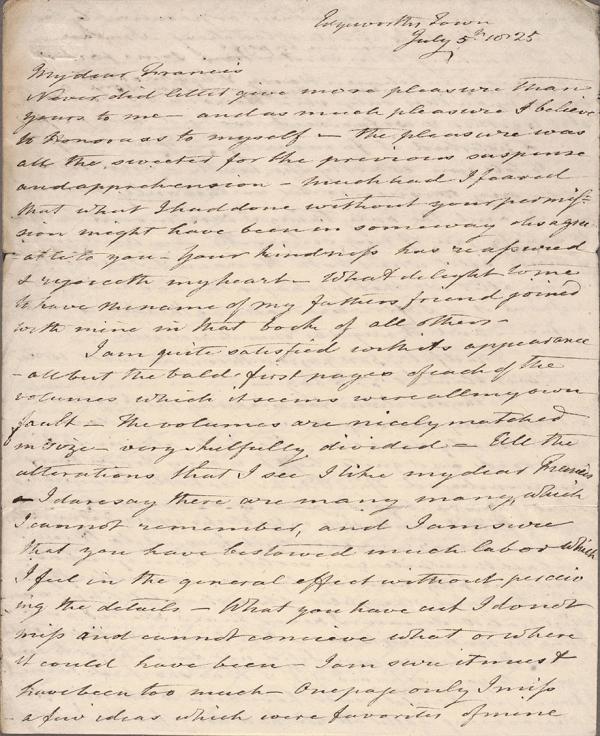 Edgeworths Town
July 5th 1825
My dear Francis
Never did letter give more pleasure than
yours to me – and as much pleasure I believe
to Honora as to myself – the pleasure was
all the sweeter for the previous suspense
and apprehension – Much had I feared
that what I had done without your permis-
sion might have been in some way disagre-
able to you – Your kindness has reassured
& rejoiceth my heart – What delight to me
to have the name of my fathers friend joined
with mine in that book of all others –
I am quite satisfied with its appearance
– all but the bald first pages of each of the
volumes which it seems were all my own
fault – The volumes are nicely matched
in size – very skilfully divided – All the
alterations that I see I like my dear Francis
– I dare say there are many many which
I cannot remember, and I am sure
that you have bestowed much labor which
I feel in the general effect without perceiv
ing the details – What you have cut I do not
miss and cannot concieve what or where
it could have been – I am sure it must
have been too much – One page only I miss
a few ideas which were favorites of mine